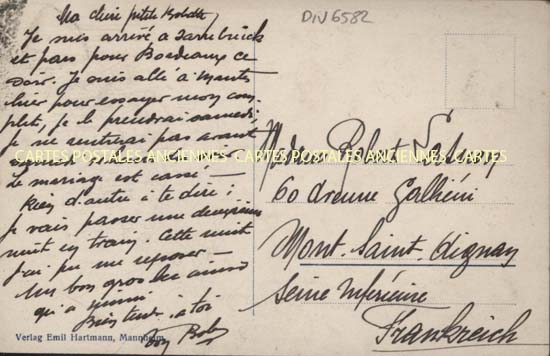 DIV 6582
Ma chère petite
Je suis arrivé à Sarrebrück
et pars pour Bordeaux ce
soir. Je suis allé à
hier pour essayer mon com-
plet, je le prendrai samedi,
je ne rentrerai pas avant
CARTES POSTALES ANCIENNES CARTES POSTALES ANCIENNES CARTES POSTALES ANCIENNES
Le mariage est cassé —
Rien d'autre à te dire ;
je vais passer une deuxième
nuit en train. Cette nuit
j'ai pu me reposer —
Un bon gros
qui a
Bien tendr. à toi
Ton Bob
Madame Robert
60 avenue Galliéni
Mont-Saint-Aignan
Seine Inférieure
Frankreich
Verlag Emil Hartmann, Mannheim